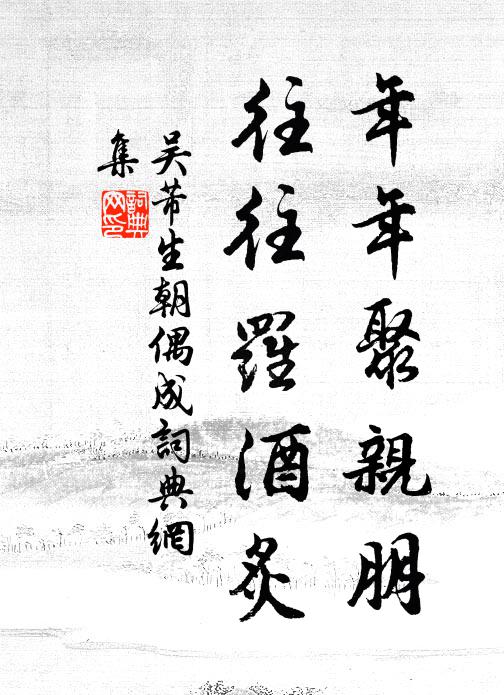 年年聚親朋
往往羅酒炙
吴芾生朝偶成詞典網
集
詞典
网印